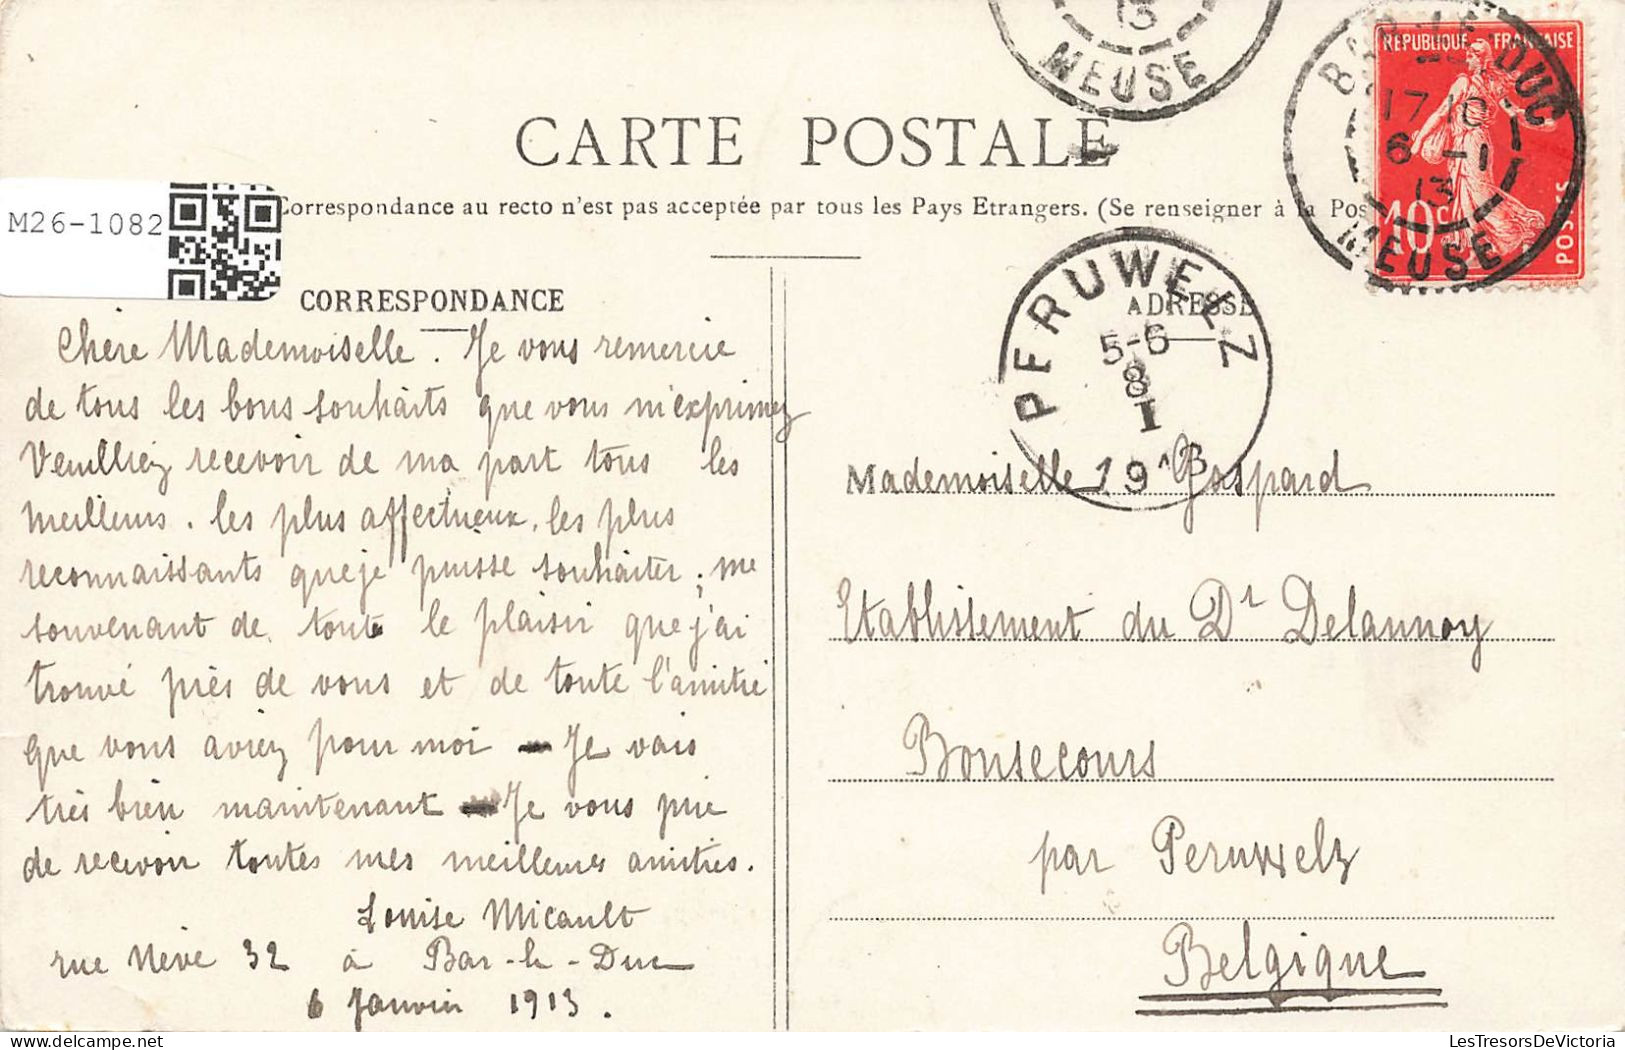 MEUSE
BAR-LE-DUC
17 10
6 -1
13
MEUSE
REPUBLIQUE FRANÇAISE
10c
POSTES
CARTE POSTALE
M26-1082
Correspondance au recto n'est pas acceptée par tous les Pays Etrangers. (Se renseigner à la Pos
CORRESPONDANCE
ADRESSE
PERUWELZ
5-6
8
I
1913
Chère Mademoiselle. Je vous remercie
de tous les bons souhaits que vous m'exprimez
Veuillez recevoir de ma part tous les
meilleurs. les plus affectueux, les plus
reconnaissants que je puisse souhaiter; me
souvenant de toute le plaisir que j'ai
trouvé près de vous et de toute l'amitié
que vous aviez pour moi - Je vais
très bien maintenant - Je vous prie
de recevoir toutes mes meilleures amitiés.
Louise Micault
rue Nève 32 à Bar-le-Duc
6 Janvier 1913.
Mademoiselle Gaspard
Etablissement du Dr Delannoy
Bonsecours
par Peruwelz
Belgique
LesTresorsDeVictoria